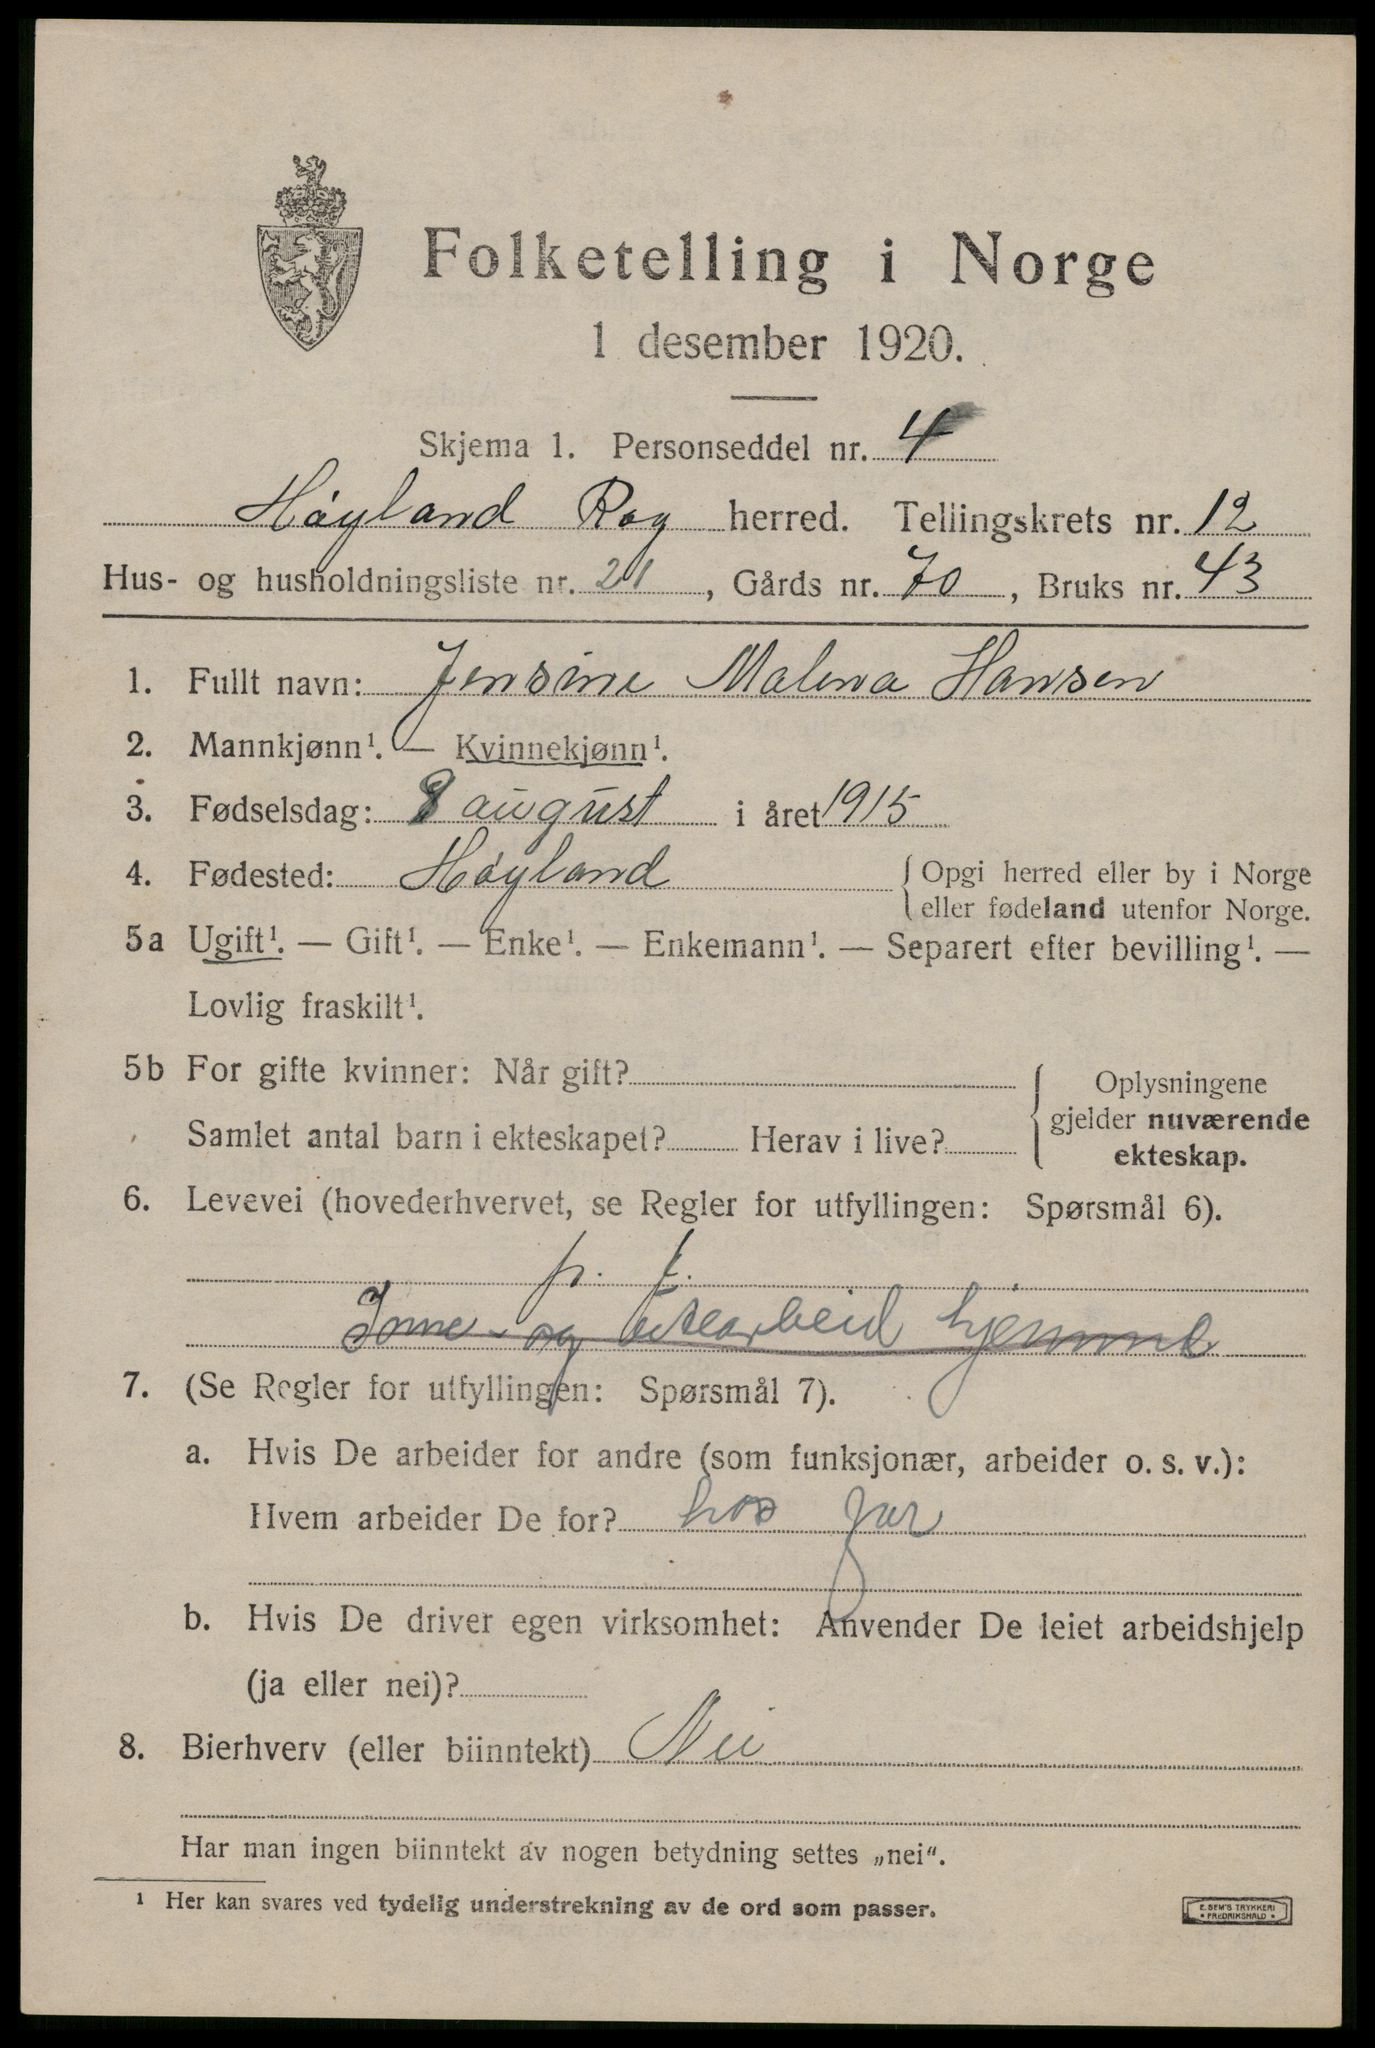 Folketelling i Norge
1 desember 1920.
Skjema 1. Personseddel nr. 4
Høyland Rog herred. Tellingskrets nr. 12
Hus- og husholdningsliste nr. 21, Gårds nr. 70, Bruks nr. 43
1. Fullt navn: Jensine Malena Hansen
2. Mannkjønn¹. — Kvinnekjønn¹.
3. Fødselsdag: 8 august i året 1915
4. Fødested: Høyland {Opgi herred eller by i Norge
eller fødeland utenfor Norge.
5a Ugift¹. — Gift¹. — Enke¹. — Enkemann¹. — Separert efter bevilling¹. —
Lovlig fraskilt¹.
5b For gifte kvinner: Når gift?
Samlet antal barn i ekteskapet? Herav i live?
Oplysningene
gjelder nuværende
ekteskap.
6. Levevei (hovederhvervet, se Regler for utfyllingen: Spørsmål 6).
fr. f.
Inne- og utearbeid hjemme
7. (Se Regler for utfyllingen: Spørsmål 7).
a. Hvis De arbeider for andre (som funksjonær, arbeider o. s. v.):
Hvem arbeider De for? hos far
b. Hvis De driver egen virksomhet: Anvender De leiet arbeidshjelp
(ja eller nei)?
8. Bierhverv (eller biinntekt) Nei
Har man ingen biinntekt av nogen betydning settes „nei".
¹ Her kan svares ved tydelig understrekning av de ord som passer.
E. SEM'S TRYKKERI
• FREDRIKSHALD •